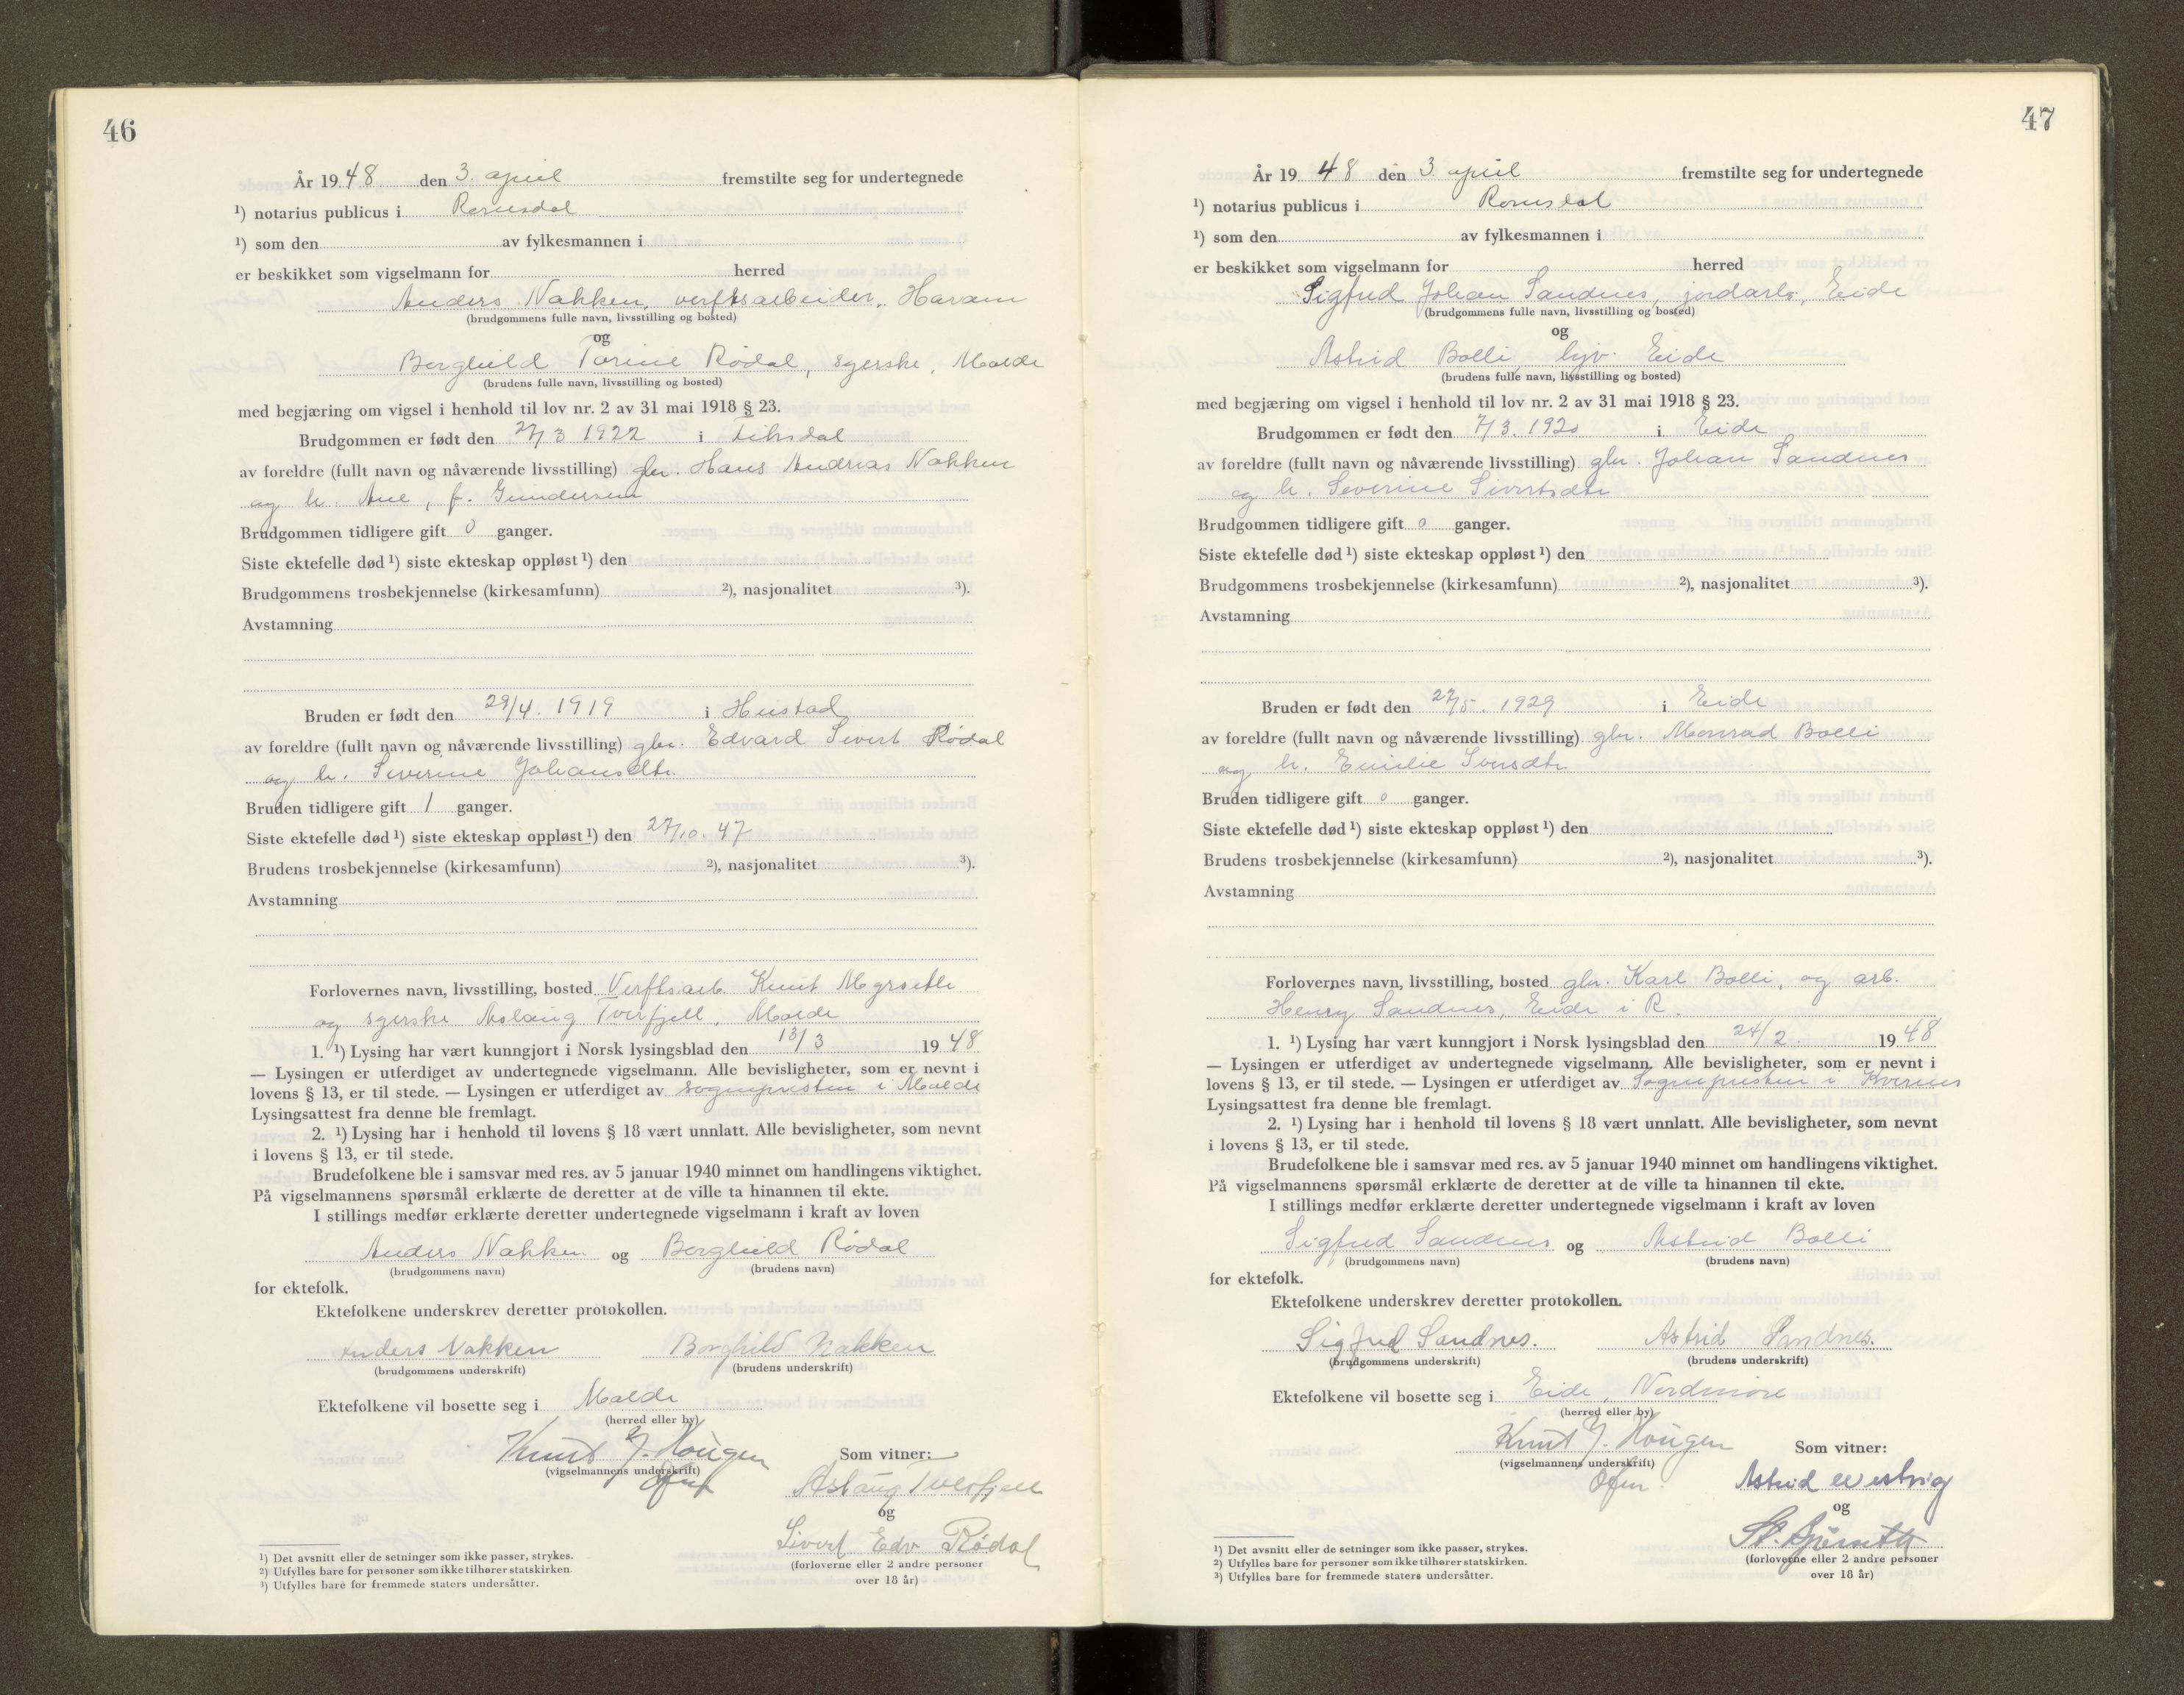 46
År 1948 den 3. april fremstilte seg for undertegnede
¹) notarius publicus i Romsdal
¹) som den av fylkesmannen i
er beskikket som vigselmann for herred
Anders Nakken, verftsarbeider, Haram
(brudgommens fulle navn, livsstilling og bosted)
og
Borghild Torine Rødal, syerske, Molde
(brudens fulle navn, livsstilling og bosted)
med begjæring om vigsel i henhold til lov nr. 2 av 31 mai 1918 § 23.
Brudgommen er født den 27/3 1922 i
av foreldre (fullt navn og nåværende livsstilling) gbr. Hans Andreas Nakken
og h. Ane, f. Gundersen
Brudgommen tidligere gift 0 ganger.
Siste ektefelle død ¹) siste ekteskap oppløst ¹) den
Brudgommens trosbekjennelse (kirkesamfunn) ²), nasjonalitet ³).
Avstamning
Bruden er født den 29/4. 1919 i Hustad
av foreldre (fullt navn og nåværende livsstilling) gbr. Edvard Sivert Rødal
og h. Severine Johansdtr.
Bruden tidligere gift 1 ganger.
Siste ektefelle død ¹) siste ekteskap oppløst ¹) den 27/10. 47
Brudens trosbekjennelse (kirkesamfunn) ²), nasjonalitet ³).
Avstamning
Forlovernes navn, livsstilling, bosted Verftsarb. Knut Myrsetle
og syerske Aslaug Tverfjell, Molde
1. ¹) Lysing har vært kunngjort i Norsk lysingsblad den 13/3 1948
— Lysingen er utferdiget av undertegnede vigselmann. Alle bevisligheter, som er nevnt i
lovens § 13, er til stede. — Lysingen er utferdiget av sognepresten i Molde
Lysingsattest fra denne ble fremlagt.
2. ¹) Lysing har i henhold til lovens § 18 vært unnlatt. Alle bevisligheter, som nevnt
i lovens § 13, er til stede.
Brudefolkene ble i samsvar med res. av 5 januar 1940 minnet om handlingens viktighet.
På vigselmannens spørsmål erklærte de deretter at de ville ta hinannen til ekte.
I stillings medfør erklærte deretter undertegnede vigselmann i kraft av loven
Anders Nakken og Borghild Rødal
(brudgommens navn) (brudens navn)
for ektefolk.
Ektefolkene underskrev deretter protokollen.
Anders Nakken Borghild Nakken
(brudgommens underskrift) (brudens underskrift)
Ektefolkene vil bosette seg i Molde
(herred eller by)
Knut J. Hougen Som vitner:
(vigselmannens underskrift)
Aslaug Tverfjell
og
Sivert Edv. Rødal
(forloverne eller 2 andre personer
over 18 år)
¹) Det avsnitt eller de setninger som ikke passer, strykes.
²) Utfylles bare for personer som ikke tilhører statskirken.
³) Utfylles bare for fremmede staters undersåtter.
47
År 1948 den 3 april fremstilte seg for undertegnede
¹) notarius publicus i Romsdal
¹) som den av fylkesmannen i
er beskikket som vigselmann for herred
Sigfred Johan Sandnes, jordarb., Eide
(brudgommens fulle navn, livsstilling og bosted)
og
Astrid Bolli, hjv. Eide
(brudens fulle navn, livsstilling og bosted)
med begjæring om vigsel i henhold til lov nr. 2 av 31 mai 1918 § 23.
Brudgommen er født den 7/3. 1920 i Eide
av foreldre (fullt navn og nåværende livsstilling) gbr. Johan Sandnes
og h. Severine Sivertsdtr
Brudgommen tidligere gift 0 ganger.
Siste ektefelle død ¹) siste ekteskap oppløst ¹) den
Brudgommens trosbekjennelse (kirkesamfunn) ²), nasjonalitet ³).
Avstamning
Bruden er født den 27/5. 1929 i Eide
av foreldre (fullt navn og nåværende livsstilling) gbr. Monrad Bolli
og h. Emilie Iversdtr
Bruden tidligere gift 0 ganger.
Siste ektefelle død ¹) siste ekteskap oppløst ¹) den
Brudens trosbekjennelse (kirkesamfunn) ²), nasjonalitet ³).
Avstamning
Forlovernes navn, livsstilling, bosted gbr. Karl Bolli, og arb.
Henry Sandnes, Eide i R.
1. ¹) Lysing har vært kunngjort i Norsk lysingsblad den 24/2. 1948
— Lysingen er utferdiget av undertegnede vigselmann. Alle bevisligheter, som er nevnt i
lovens § 13, er til stede. — Lysingen er utferdiget av Sognepresten i Kvernes
Lysingsattest fra denne ble fremlagt.
2. ¹) Lysing har i henhold til lovens § 18 vært unnlatt. Alle bevisligheter, som nevnt
i lovens § 13, er til stede.
Brudefolkene ble i samsvar med res. av 5 januar 1940 minnet om handlingens viktighet.
På vigselmannens spørsmål erklærte de deretter at de ville ta hinannen til ekte.
I stillings medfør erklærte deretter undertegnede vigselmann i kraft av loven
Sigfred Sandnes og Astrid Bolli
(brudgommens navn) (brudens navn)
for ektefolk.
Ektefolkene underskrev deretter protokollen.
Sigfred Sandnes. Astrid Sandnes.
(brudgommens underskrift) (brudens underskrift)
Ektefolkene vil bosette seg i Eide, Nordmøre
(herred eller by)
Knut J. Hougen Som vitner:
(vigselmannens underskrift)
Astrid
og
(forloverne eller 2 andre personer
over 18 år)
¹) Det avsnitt eller de setninger som ikke passer, strykes.
²) Utfylles bare for personer som ikke tilhører statskirken.
³) Utfylles bare for fremmede staters undersåtter.